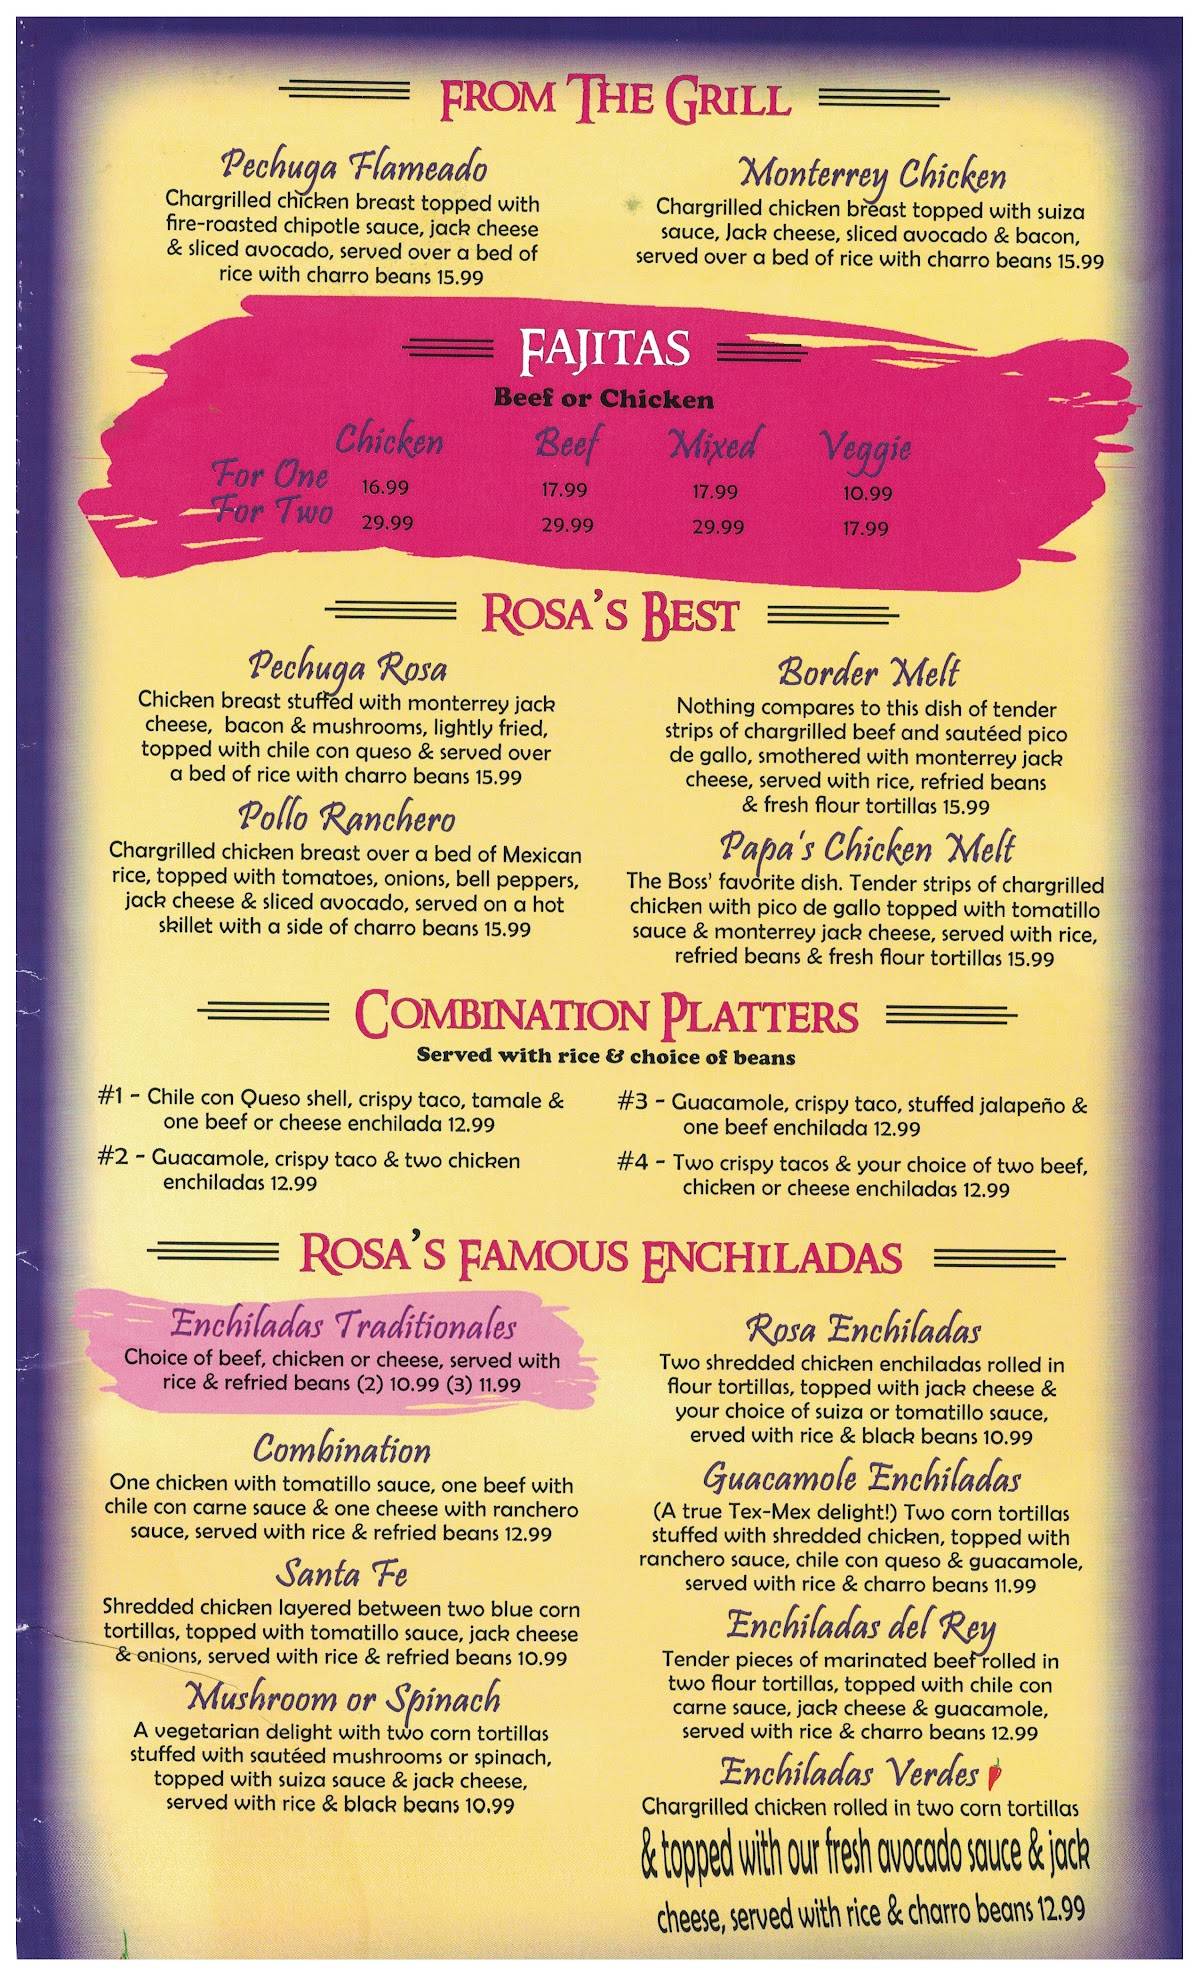 FROM THE GRILL
Pechuga Flameado
Chargrilled chicken breast topped with
fire-roasted chipotle sauce, jack cheese
& sliced avocado, served over a bed of
rice with charro beans 15.99
Monterrey Chicken
Chargrilled chicken breast topped with suiza
sauce, Jack cheese, sliced avocado & bacon,
served over a bed of rice with charro beans 15.99
FAJITAS
Beef or Chicken
Chicken Beef Mixed Veggie
For One 16.99 17.99 17.99 10.99
For Two 29.99 29.99 29.99 17.99
ROSA'S BEST
Pechuga Rosa
Chicken breast stuffed with monterrey jack
cheese, bacon & mushrooms, lightly fried,
topped with chile con queso & served over
a bed of rice with charro beans 15.99
Pollo Ranchero
Chargrilled chicken breast over a bed of Mexican
rice, topped with tomatoes, onions, bell peppers,
jack cheese & sliced avocado, served on a hot
skillet with a side of charro beans 15.99
Border Melt
Nothing compares to this dish of tender
strips of chargrilled beef and sautéed pico
de gallo, smothered with monterrey jack
cheese, served with rice, refried beans
& fresh flour tortillas 15.99
Papa's Chicken Melt
The Boss' favorite dish. Tender strips of chargrilled
chicken with pico de gallo topped with tomatillo
sauce & monterrey jack cheese, served with rice,
refried beans & fresh flour tortillas 15.99
COMBINATION PLATTERS
Served with rice & choice of beans
#1 - Chile con Queso shell, crispy taco, tamale &
one beef or cheese enchilada 12.99
#2 - Guacamole, crispy taco & two chicken
enchiladas 12.99
#3 - Guacamole, crispy taco, stuffed jalapeño &
one beef enchilada 12.99
#4 - Two crispy tacos & your choice of two beef,
chicken or cheese enchiladas 12.99
ROSA'S FAMOUS ENCHILADAS
Enchiladas Traditionales
Choice of beef, chicken or cheese, served with
rice & refried beans (2) 10.99 (3) 11.99
Combination
One chicken with tomatillo sauce, one beef with
chile con carne sauce & one cheese with ranchero
sauce, served with rice & refried beans 12.99
Santa Fe
Shredded chicken layered between two blue corn
tortillas, topped with tomatillo sauce, jack cheese
& onions, served with rice & refried beans 10.99
Mushroom or Spinach
A vegetarian delight with two corn tortillas
stuffed with sautéed mushrooms or spinach,
topped with suiza sauce & jack cheese,
served with rice & black beans 10.99
Rosa Enchiladas
Two shredded chicken enchiladas rolled in
flour tortillas, topped with jack cheese &
your choice of suiza or tomatillo sauce,
erved with rice & black beans 10.99
Guacamole Enchiladas
(A true Tex-Mex delight!) Two corn tortillas
stuffed with shredded chicken, topped with
ranchero sauce, chile con queso & guacamole,
served with rice & charro beans 11.99
Enchiladas del Rey
Tender pieces of marinated beef rolled in
two flour tortillas, topped with chile con
carne sauce, jack cheese & guacamole,
served with rice & charro beans 12.99
Enchiladas Verdes
Chargrilled chicken rolled in two corn tortillas
& topped with our fresh avocado sauce & jack
cheese, served with rice & charro beans 12.99